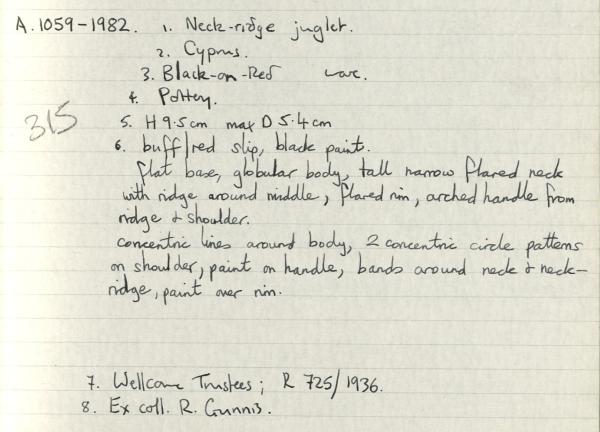 A.1059-1982. 1. Neck-ridge juglet.
2. Cyprus.
3. Black-on-Red ware.
4. Pottery.
315
5. H 9.5cm max D 5.4cm
6. buff/red slip, black paint.
flat base, globular body, tall narrow flared neck
with ridge around middle, flared rim, arched handle from
ridge & shoulder.
concentric lines around body, 2 concentric circle patterns
on shoulder, paint on handle, bands around neck & neck-
ridge, paint over rim.
7. Wellcome Trustees; R 725/1936.
8. Ex coll. R. Gunnis.